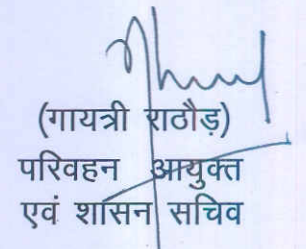 (गायत्री राठौड़)
परिवहन आयुक्त
एवं शासन सचिव